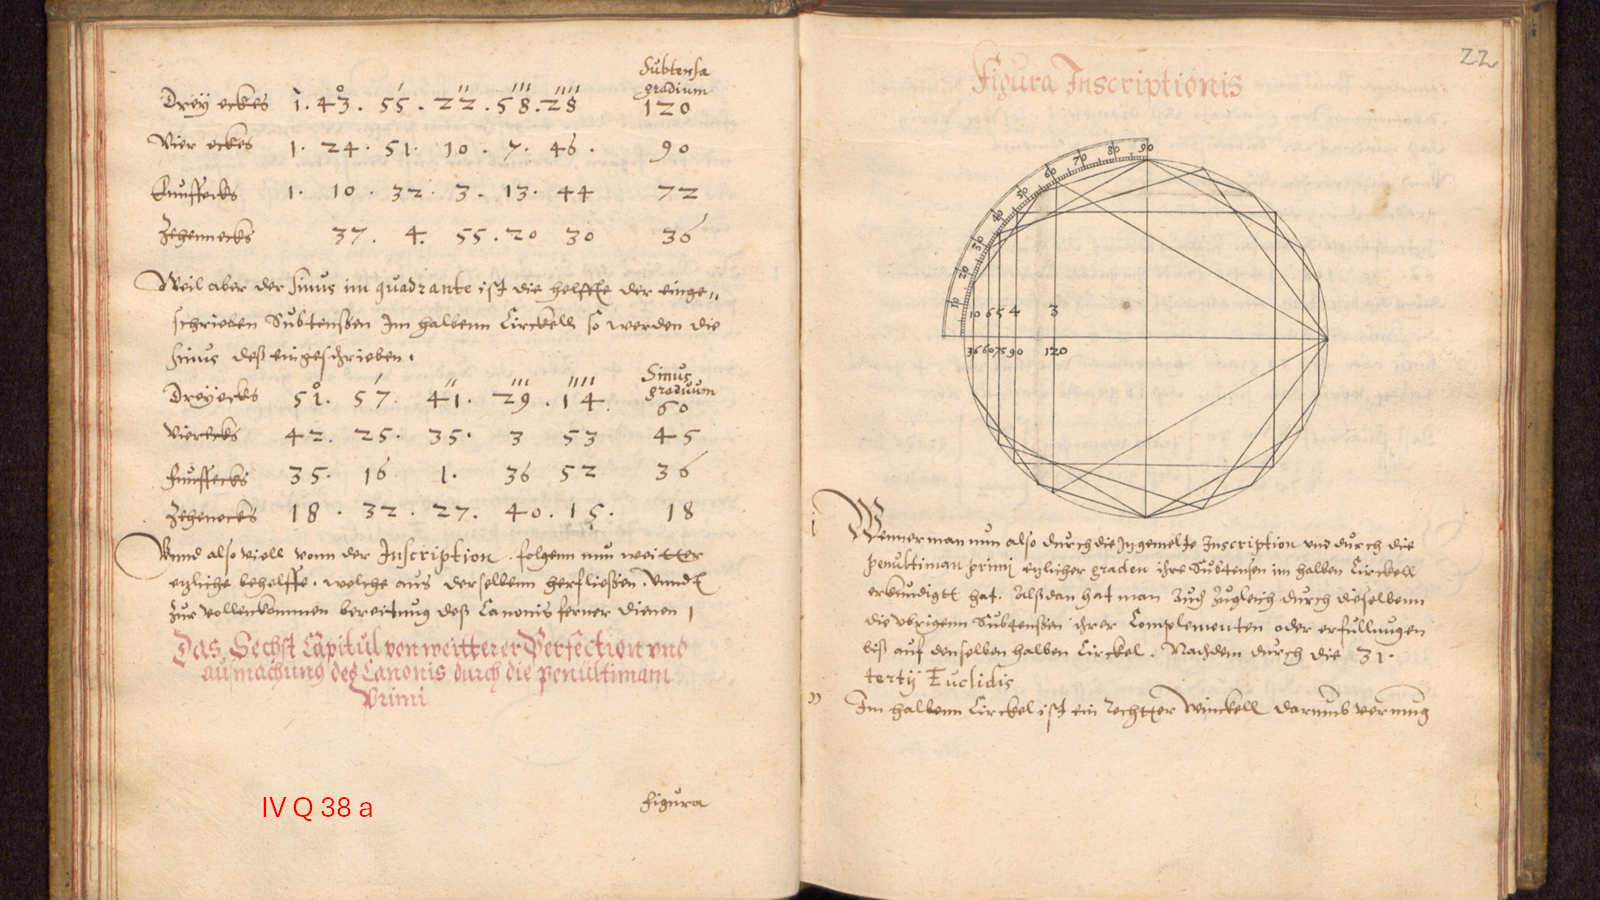 Subtensa
graduum
Drey eckes 1. 43. 55. 22. 58. 28 120
Vier eckes 1. 24. 51. 10. 7. 46. 90
Funffecks 1. 10. 32. 3. 13. 44 72
Zehennecks 37. 4. 55. 20 30 36
Weil aber der Sinus im quadrante ist die helffte der einge„
schrieben Subtensen Im halbenn Circkell so werden die
Sinus deß eingeschrieben.
Sinus
graduum
Dreyecks 51. 57. 41. 29. 14. 60
Vierecks 42. 25. 35. 3 53 45
Funffecks 35. 16 1. 36 52 36
Zehenecks 18. 32. 27. 40. 15. 18
Vnnd also viell vonn der Inscription. folgenn nun weitter
etzliche behelffe. welche aus derselbenn herfließen. Vnnd
zur vollenkommen bereitung deß Canonis ferner dienen
Das Sechst Capitul von weitterer Perfection vnd
aufmachung deß Canonis durch die penultimam
Primi
figura
IV Q 38 a
22
Figura Inscriptionis
10 20 30 40 50 60 70 80 90
10 6 5 4 3
36 60 72 90 120
1 Wenn man nun also durch die Ingemelte Inscription vnd durch die
penultiman primi etzlicher graden ihre Subtensen im halben Circkell
erkundigtt hat. Alßdan hat man auch zugleich durch dieselbenn
die vbrigenn Subtensen ihrer Complementen oder erfullungen
biß auf denselben halben Circkel. Nachdem durch die 31.
tertij Euclidis
Im halbenn Circkel ist ein Rechtter Winckell darumb vermug